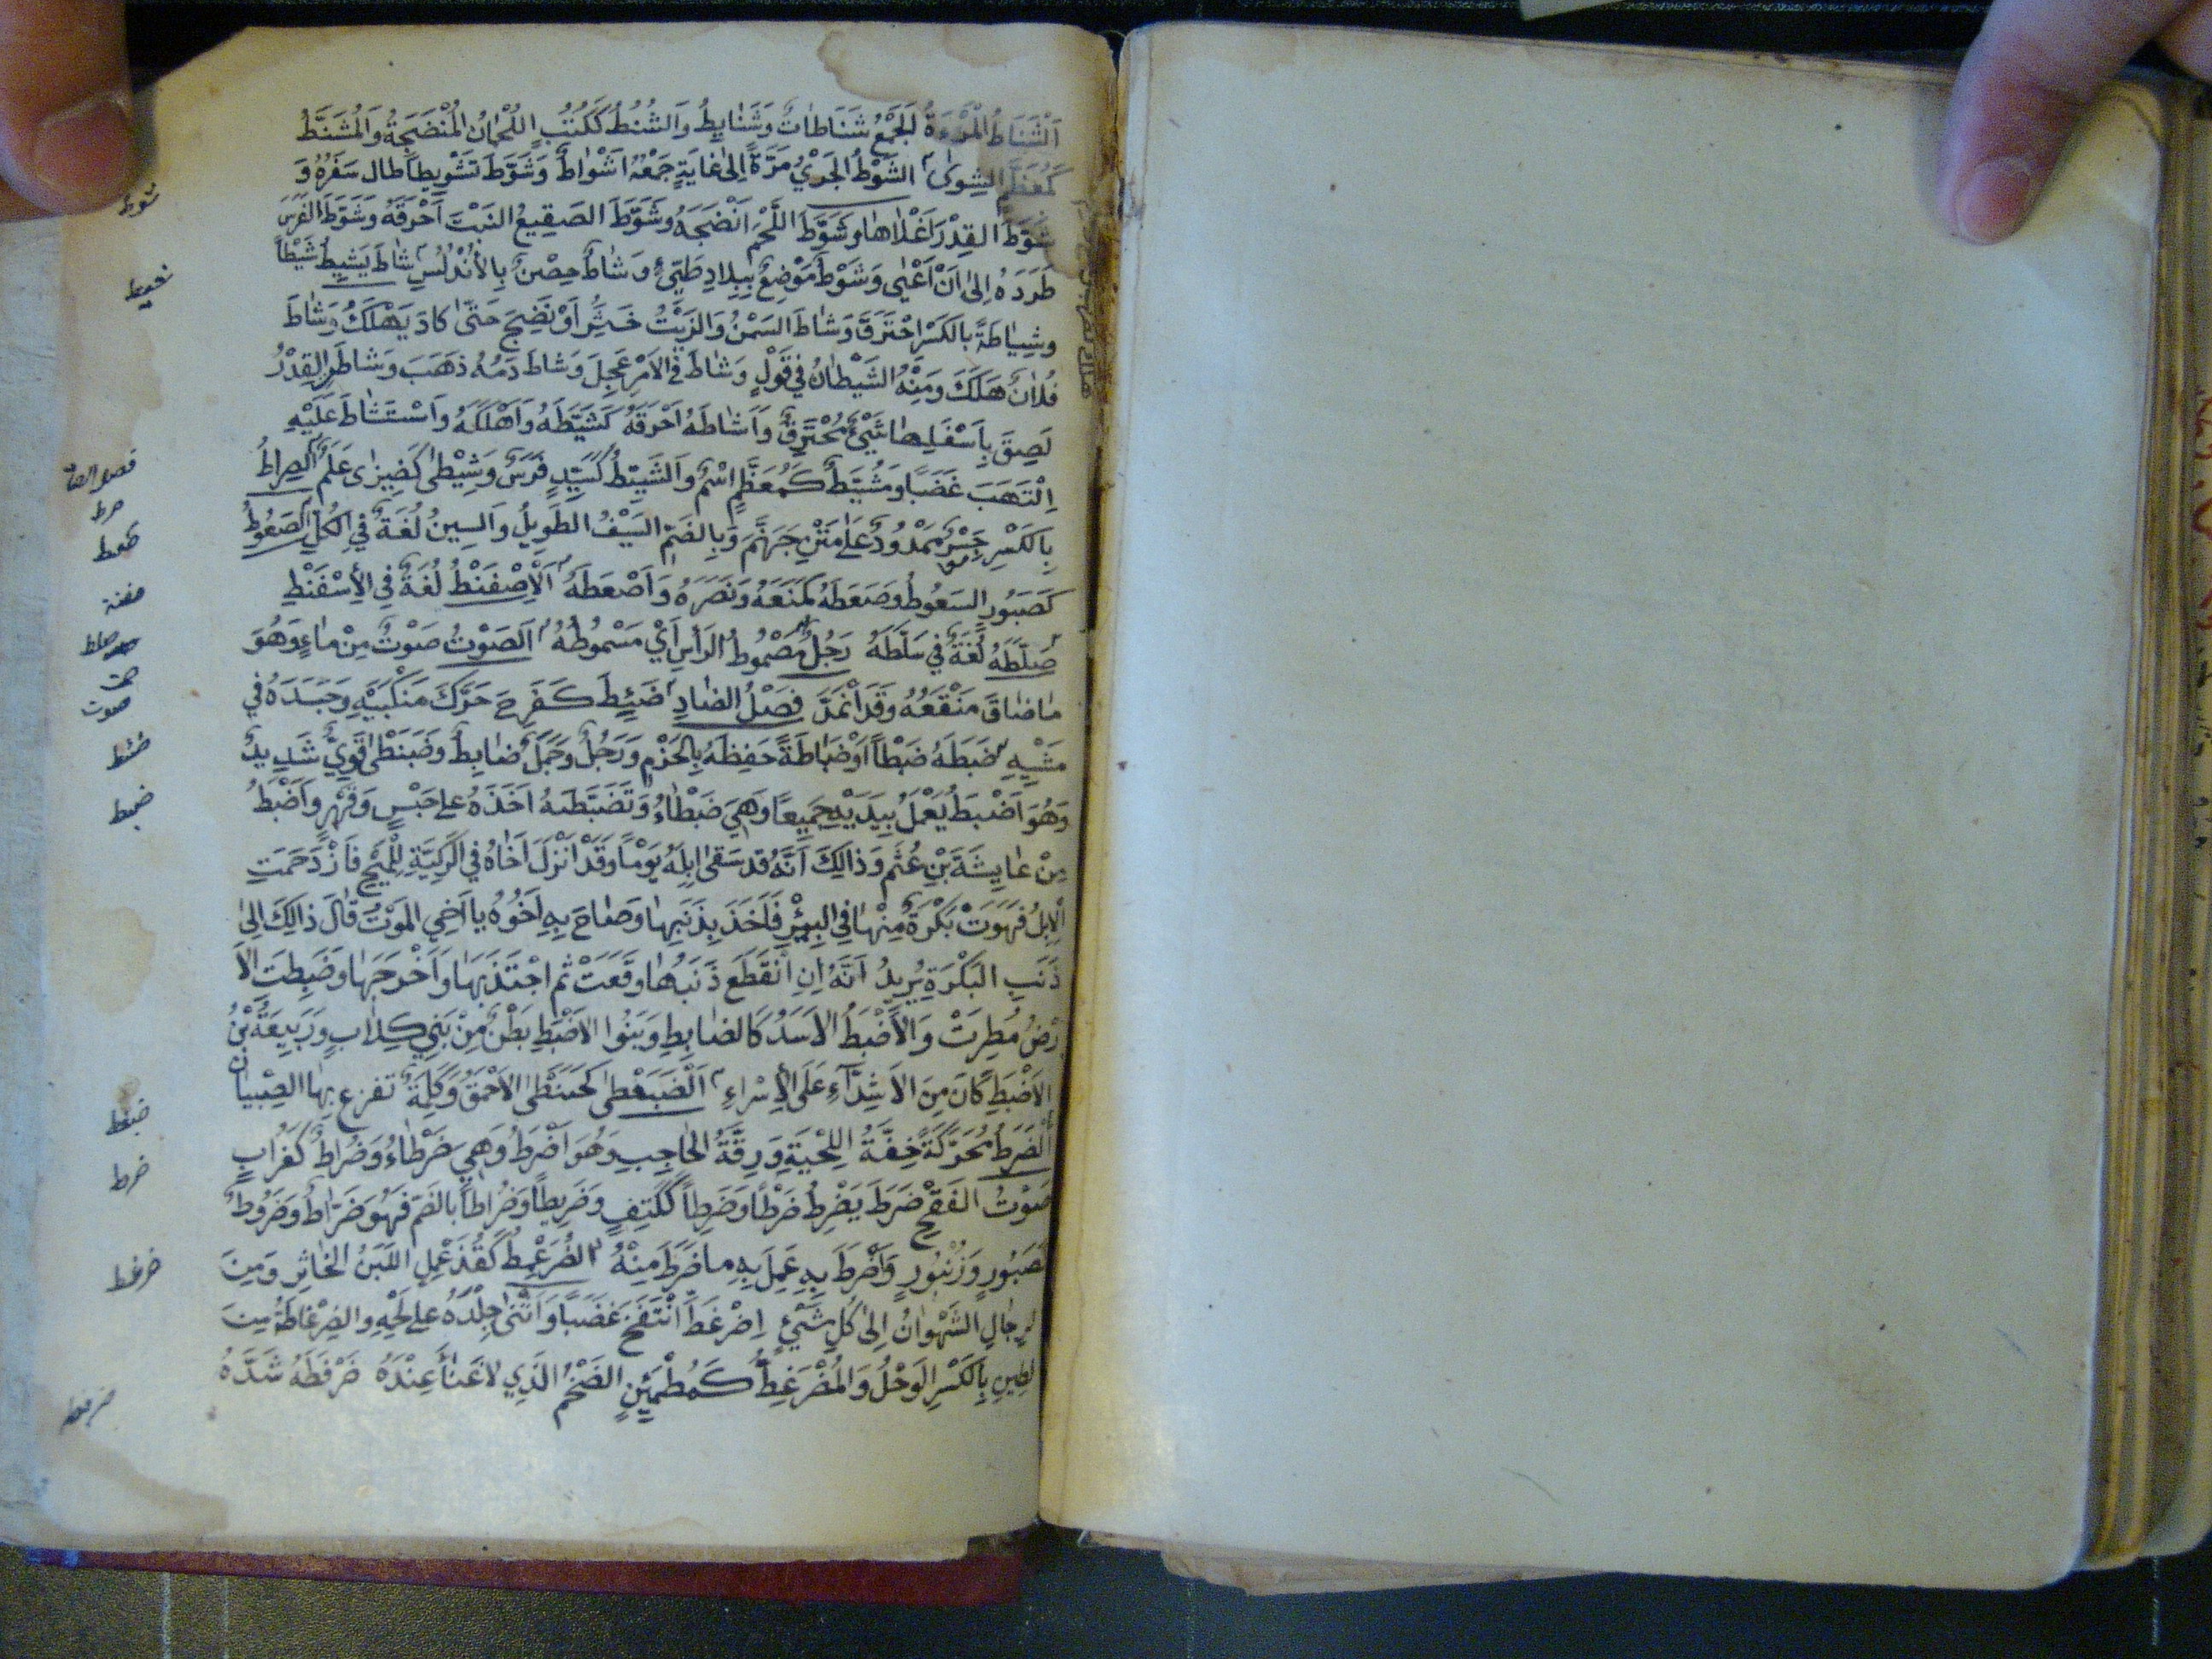 اَلشَّنَاطُ الْمَرْءَةُ الجَمْعُ شَنَاطَاتٌ وَشَنَايِطُ وَالشُنُطُ كَكُتُبٍ اللُحْمَانُ الْمُنْضَجَةُ وَالْمُشَنَّطُ
كَمُعَظَّمٍ الشِوٰى الشَوْطُ الجَرْيُ مَرَّةً اِلىٰ غايَةٍ جَمْعُهُ اَشْوَاطٌ وَشَوَّطَ تَشْوِيطاً طال سَفَرُهُ وَ
شَوَّطَ القِدْرَ اَغْلاهَا وَشَوَّطَ اللَّحْمَ اَنْضَجَهُ وشَوَّطَ الصَقِيعُ النَبْتَ اَحْرَقَهُ وَشَوَّطَ الفَرَسَ
طَرَدَهُ اِلىٰ اَنْ اَعْيٰى وَشَوْطٌ مَوْضِعٌ بِبِلادِ طَيّئٍ وَشَاطُ حِصْنٌ بِالْاُنْدُلُسِ شاطَ يَشِيطُ شَيْطاً
وشِيَاطَةً بالكَسْرِ احْتَرَقَ وَشَاطَ السَمْنُ وَالزَيْتُ خَثِرَ اَوْ نَضِجَ حَتّىٰ كادَ يَهْلَكُ وَشَاطَ
فُلانٌ هَلَكَ وَمِنْهُ الشَيْطانُ في قَوْلٍ وَشاطَ في الاَمْرِ عَجِلَ وَشاطَ دَمُهُ ذَهَبَ وَشاطَتِ القِدْرُ
لَصِقَ بِاَسْفَلِهَا شَيْئٌ مُحْتَرِقٌ وَاَشَاطَهُ اَحْرَقَهُ كَشَيَّطَهُ وَاَهْلَكَهُ وَاسْتَشَاطَ عَلَيْهِ
اِلْتَهَبَ غَضَبًا وَمُشَيَّطٌ كَمُعَظَّمٍ اسْمٌ وَالشَيِّطُ كَسَيِّدٍ فَرَسٌ وَشِيْطٰى كَضِيزٰى عَلَمٌ الصِرَاطُ
بِالكَسْرِ جِسْرٌ مَمْدُودٌ عَلىٰ مَتْنِ جَهَنَّمَ وَبِالضَمِّ السَيْفُ الطَوِيلُ وَالسِينُ لُغَةٌ في الكُلِّ الصَعُوطُ
كَصَبُورٍ السَعُوطُ وصَعَطَهُ كَمَنَعَهُ وَنَصَرَهُ وَاَصْعَطَهُ اَلْاِصْفَنْطُ لُغَةٌ فِي الْاِسْفَنْطِ
صَلَّطَهُ لُغَةٌ في سَلَّطَهُ رَجُلٌ مَصْمُوطُ الرَأسِ اَيْ مَسْمُوطُهُ اَلصَوْتُ صَوْتٌ مِنْ مَاءٍ وَهُوَ
مَا ضَاقَ مَنْقَعُهُ وَقَد امْتَدَّ فَصْلُ الضَادِ ضَئِطَ كَفَرِحَ حَرَّكَ مَنْكِبَيْهِ وَجَسَدَهُ في
مَشْيِهِ ضَبَطَهُ ضَبْطاً اَوْ ضَبَاطَةً حَفِظَهُ بِالحَزْمِ وَرَجُلٌ وَجَمَلٌ ضابِطٌ وَضَبَنْطٰى قَوِيٌّ شَدِيدٌ
وَهُوَ اَضْبَطُ يَعْمَلُ بِيَدَيْهِ جَمِيعًا وَهِيَ ضَبْطَاءُ وَتَضَبَّطَهُ اَخَذَهُ على حَبْسٍ وَقَهْرٍ وَاَضْبَطُ
مِنْ عَايِشَةَ بْنِ عُثَمٍ وَذٰالِكَ اَنَّهُ قَد سَقىٰ اِبِلَهُ يَوْمًا وَقَدْ اَنْزَلَ اَخَاهُ في الرَكِيَّةِ لِلْمَيْحِ فَازْدَحَمَتِ
الْاِبِلُ فَهَوَتْ بَكْرَةٌ مِنْهَا في البِئْرِ فَاَخَذَ بِذَنَبِهَا وَصَاحَ بِهِ اَخُوْهُ يا اَخِي المَوْتُ قَالَ ذَالِكَ اِلىٰ
ذَنَبِ البَكْرَةِ يُرِيدُ اَنَّهُ اِنِ انْقَطَعَ ذَنَبُهَا وَقَعَتْ ثُمَّ اجْتَذَبَهَا وَاَخْرَجَهَا وَضُبِطَتِ الاَ
رْضُ مُطِرَتْ وَالاَضْبَطُ الاَسَدُ كَالضَابِطِ وَبَنُوا الاَضْبَطِ بَطْنٌ مِنْ بَنِي كِلابٍ وَرَبِيعَةُ بْنُ
الاَضْبَطِ كَانَ مِنَ الاَشِدَّآءِ عَلَى الْاُسْرَاءِ اَلضَبَغْطٰى كَحَبَنْطٰى الاَحْمَقُ وَكَلِمَةٌ تفزع بِهَا الصِبْيان
الضَرَطُ مُحَرَّكَةً خِفَّةُ اللِحْيَةِ وَرِقَّةُ الحَاجِبِ وَهُوَ اَضْرَطُ وَهِيَ ضَرْطَاءُ وَضُرَاطٌ كَغُرَابٍ
صَوْتُ الفَقْحِ ضَرَطَ يَضْرِطُ ضَرْطًا وَضَرِطاً كَكَتِفٍ وَضَرِيطاً وَضُرَاطاً بِالضَمِّ فَهُوَ ضَرّاطٌ وَضَرُوطٌ
كَصَبُورٍ وَزُنْبُورٍ وَاَضْرَطَ بِهِ عَمِلَ بِهِ مَا ضَرَطَ مِنْهُ الضُرَعْمِطُ كَقُذَعْمِلٍ اللَبَنُ الخَاثِرِ وَمِنَ
الرِجَالِ الشَهْوَانُ اِلىٰ كُلِّ شَيْئٍ اِضْرَغَطَّ انْتَفَخَ غَضَبًا وَاَثْنىٰ جِلْدُهُ على لَحْمِهِ والضِرْغَاطَةُ مِنَ
الطِينِ بِالكَسْرِ الوَحْلُ وَالْمُضْرَغِطُّ كَمُطْمَئِنٍّ الضَخْمُ الَّذِي لا غَنَاءَ عِنْدَهُ ضَرْفَطَهُ شَدَّهُ
شوط
شيط
فصل الصاد
صرط
صعط
صلط
صمت
صوت
ضئط
ضبط
ضبغط
ضرط
ضرغط
ضرفط